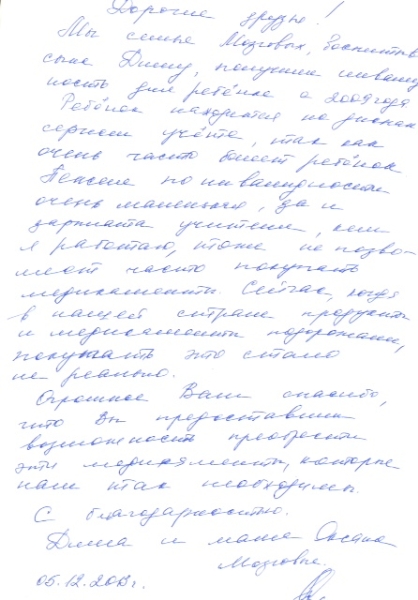 Дорогие друзья!
Мы семья Мозговых, воспитыв
сына Диму, получили инвалид
ность для ребёнка с 2009 года
Ребёнок находится на диспан
серном учёте, так как
очень часто болеет ребёнок
Пенсия по инвалидности
очень маленькая, да и
зарплата учителя, кем
я работаю, тоже не позво-
ляет часто покупать
медикаменты. Сейчас, когда
в нашей стране продукты
и медикаменты подорожали,
покупать это стало
не реально.
Огромное Вам спасибо,
что Вы предоставили
возможность преобрести
эти медикаменты, которые
нам так необходимы.
С благодарностью.
Дима и мама Оксана
Мозговые.
05.12.